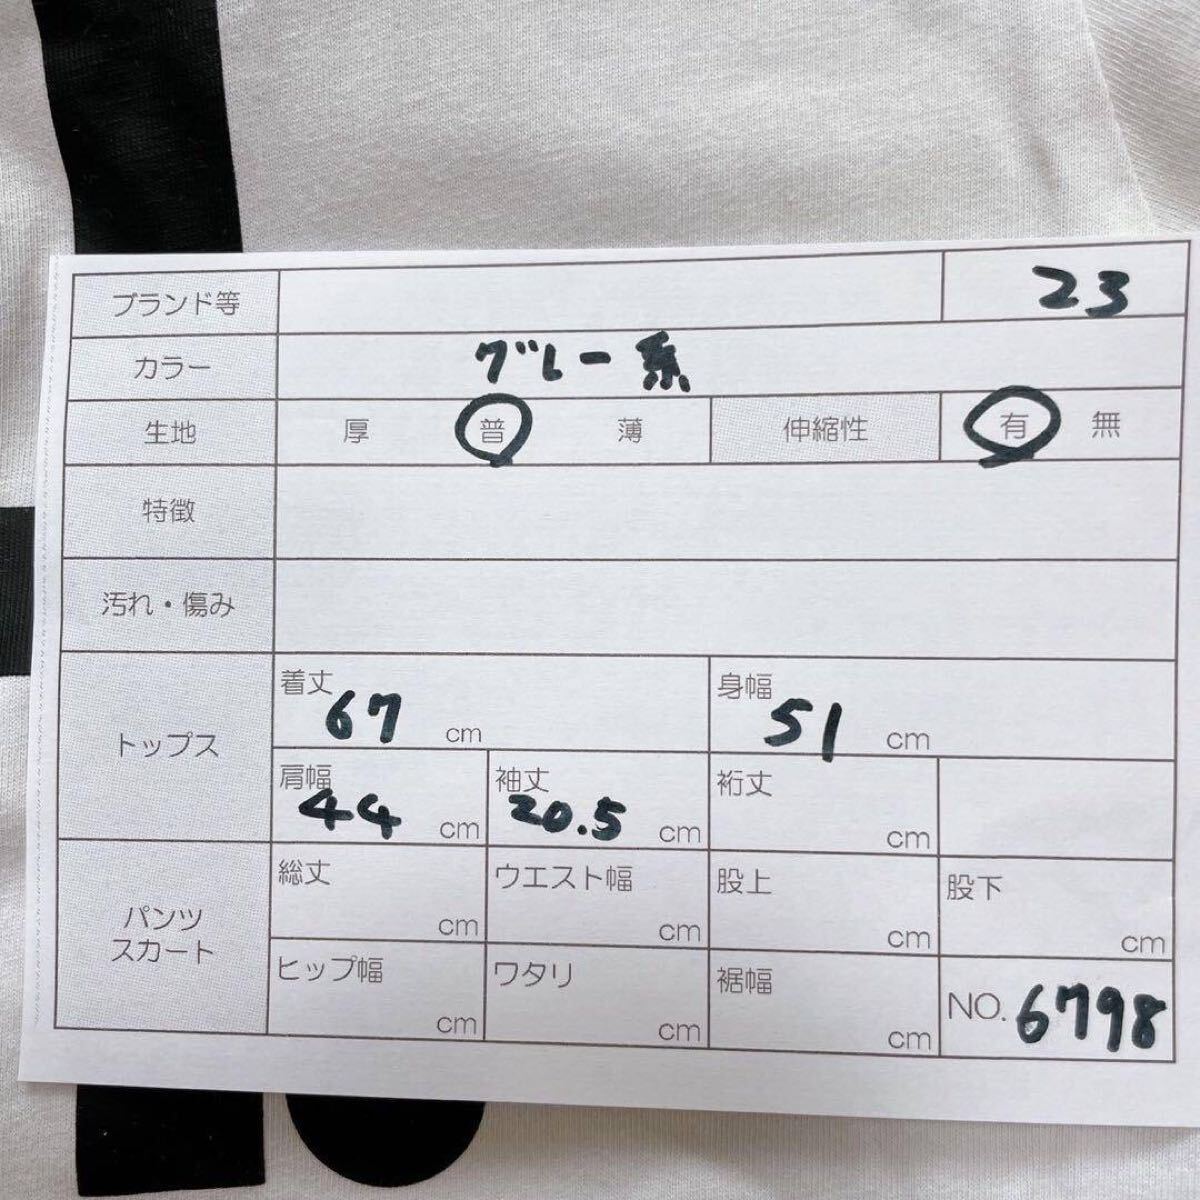 ブランド等 23
カラー グレー系
生地 厚 普 薄 伸縮性 有 無
特徴
汚れ・傷み
トップス
着丈 67 cm 身幅 51 cm
肩幅 44 cm 袖丈 20.5 cm 裄丈 cm
パンツ
スカート
総丈 cm ウエスト幅 cm 股上 cm 股下 cm
ヒップ幅 cm ワタリ cm 裾幅 cm NO. 6798